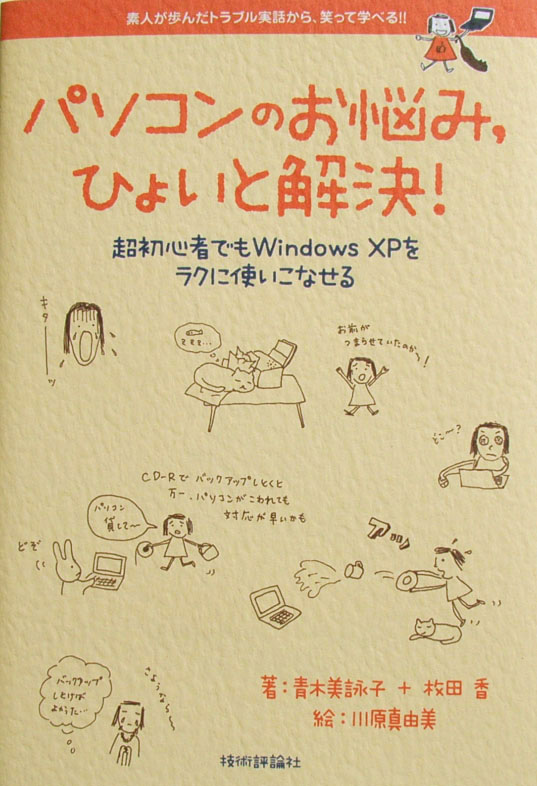 素人が歩んだトラブル実話から、笑って学べる!!
パソコンのお悩み,
ひょいと解決!
超初心者でもWindows XPを
ラクに使いこなせる
キター――ッ
ててて…
お前が
つまらせていたのかっ!
どこー?
CD-Rで バックアップしとくと
万一、パソコンがこわれても
対応が早いかも
パソコン
貸して〜
どぞ
アッッ
バックアップ
しとけば
よかった…
さようなら〜
著:青木美詠子 + 枚田 香
絵:川原真由美
技術評論社